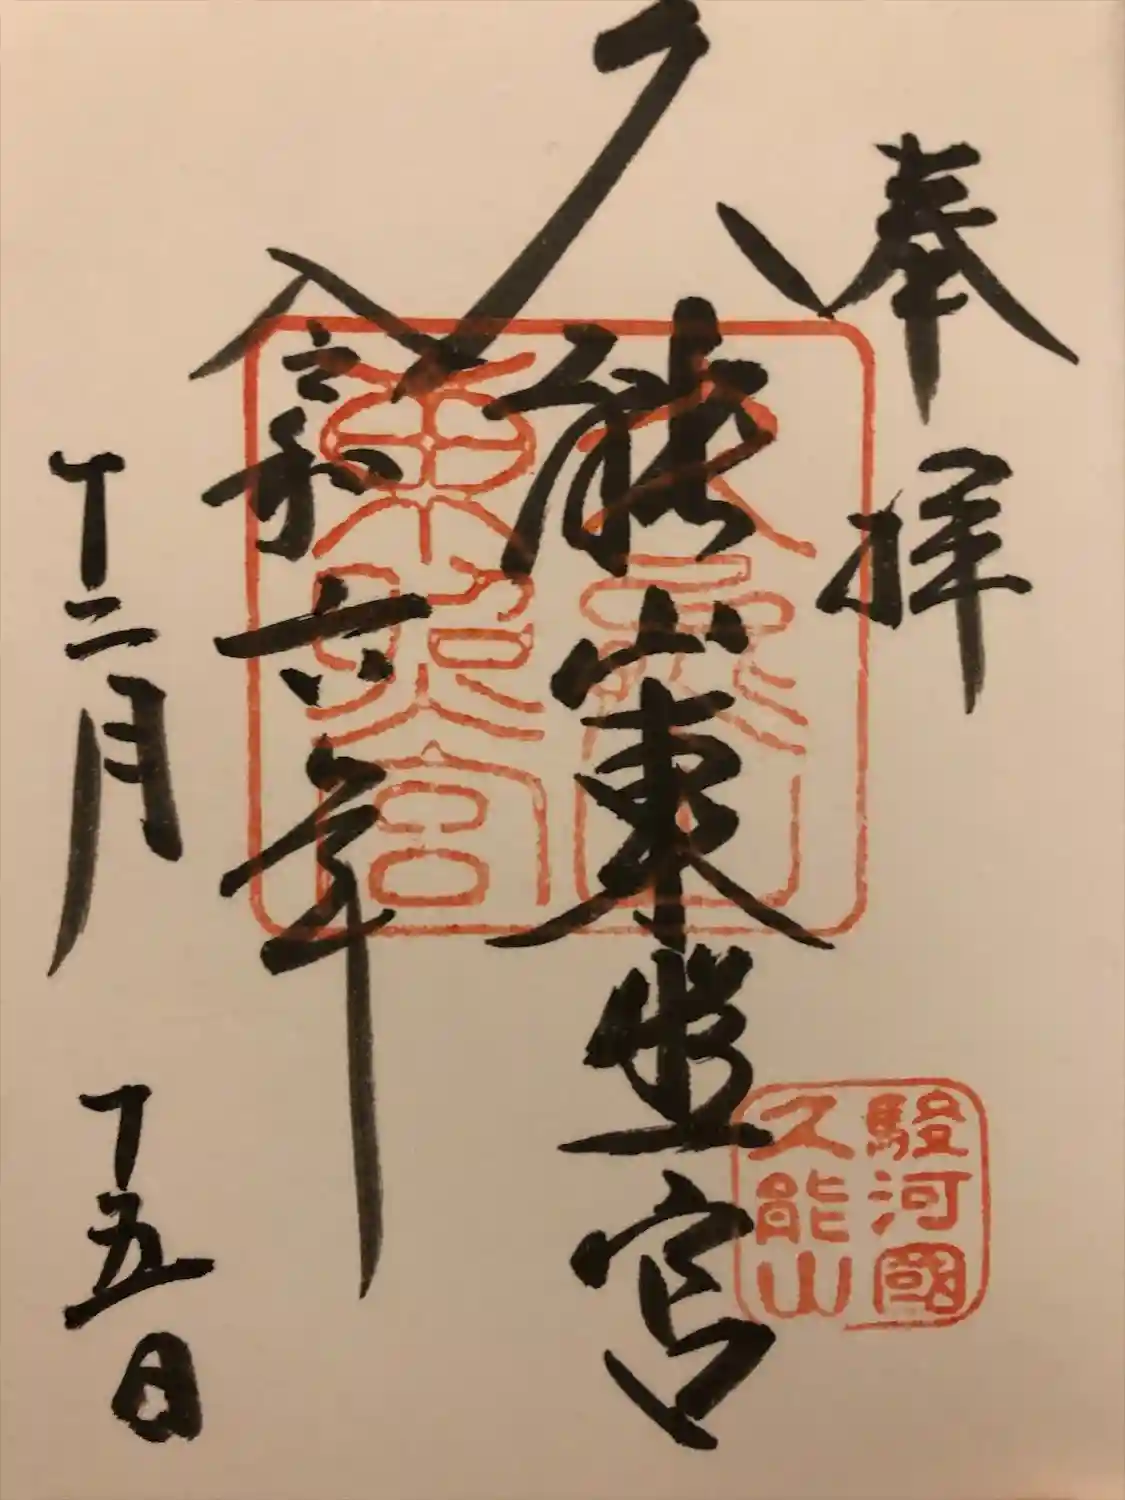 奉拝
久能山東照宮
令和六年
十二月十五日
久能山
東照宮
駿河國
久能山